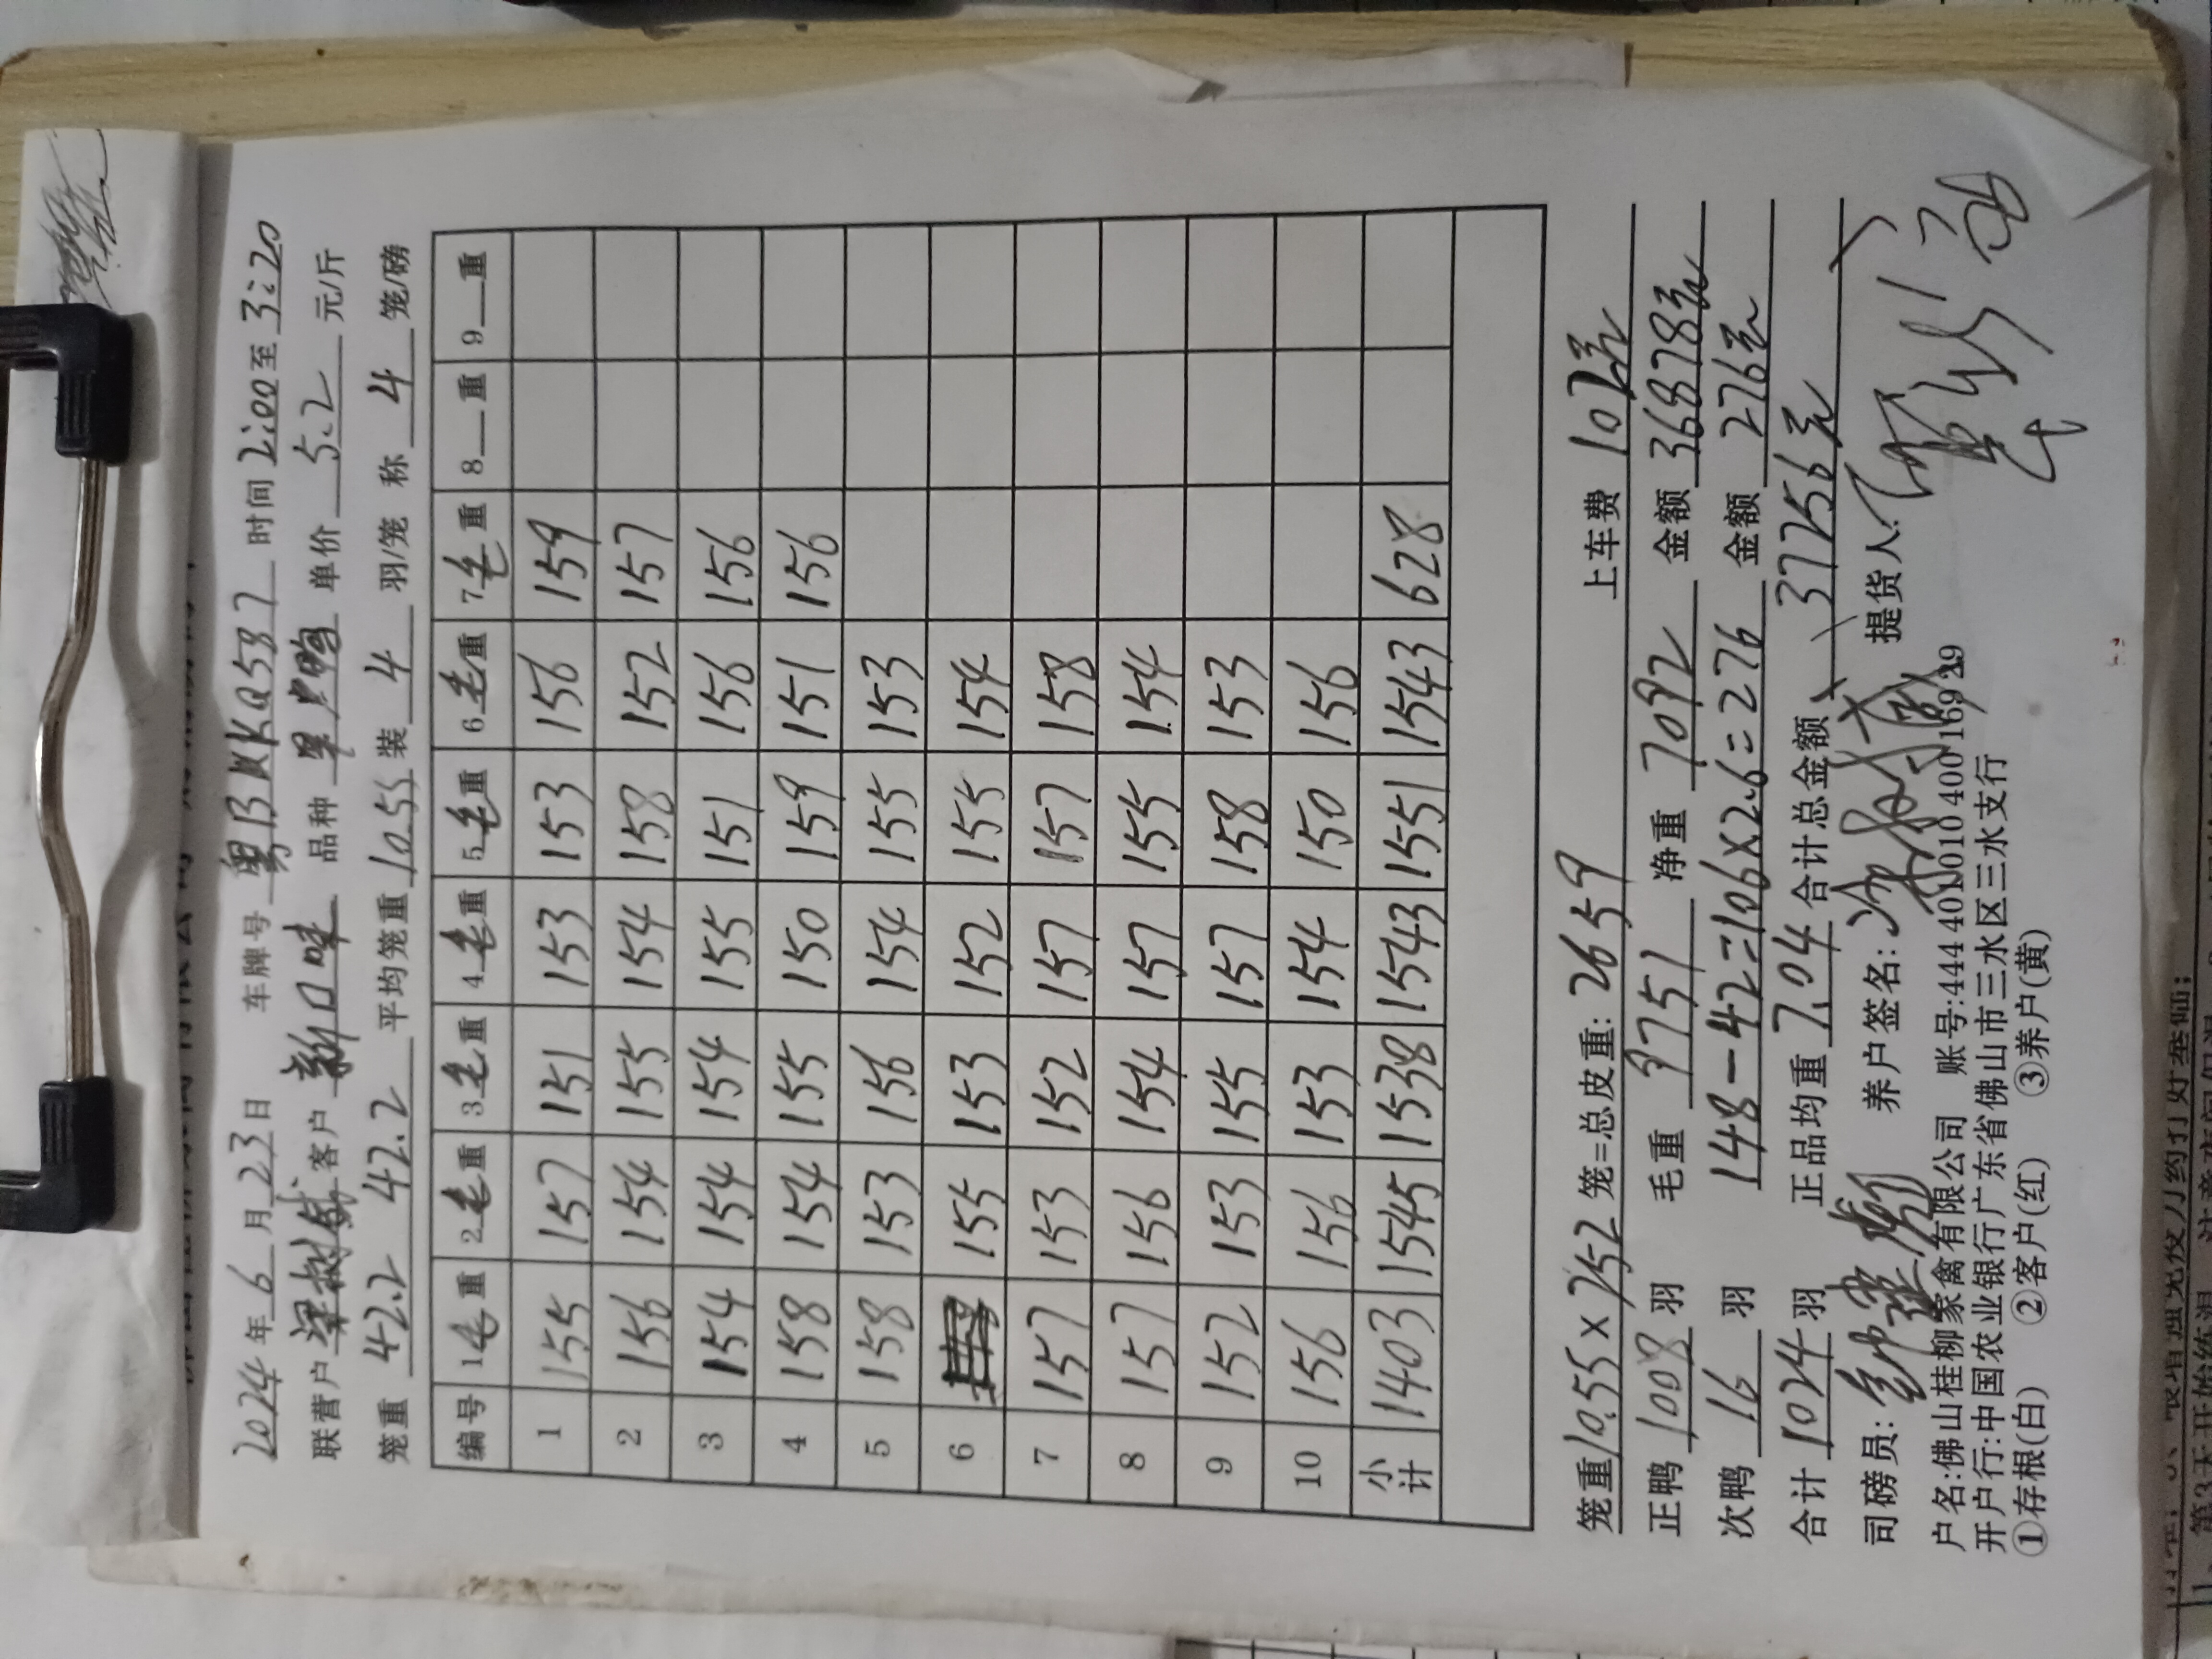 2024 年 6 月 23 日 车牌号 粤BKQ587 时间 2:00 至 3:20
联营户 梁树城 客户 新口味 品种 单价 5.2 元/斤
笼重 42.2 42.2 平均笼重 10.55 装 4 羽/笼 称 4 笼/磅
编号 1毛重 2毛重 3毛重 4毛重 5毛重 6毛重 7毛重 8 重 9 重
1 155 157 151 153 153 156 159
2 156 154 155 154 158 152 157
3 154 154 154 155 151 156 156
4 158 154 155 150 159 151 156
5 158 153 156 154 155 153
6 155 153 152 155 154
7 157 153 152 157 157 158
8 157 156 154 157 155 154
9 152 153 155 157 158 153
10 156 156 153 154 150 156
小计 1403 1545 1538 1543 1551 1543 628
笼重 10.55 x 252 笼=总皮重: 2659 上车费 102元
正鸭 1008 羽 毛重 9751 净重 7092 金额 36878元
次鸭 16 羽 148-42=106x2.6=276 金额 276元
合计 1024 羽 正品均重 7.04 合计总金额 37256元
司磅员: 养户签名: 提货人:
户名:佛山桂柳家禽有限公司 账号:444 401 0010 400 169 29
开户行:中国农业银行广东省佛山市三水区三水支行
①存根(白) ②客户(红) ③养户(黄)